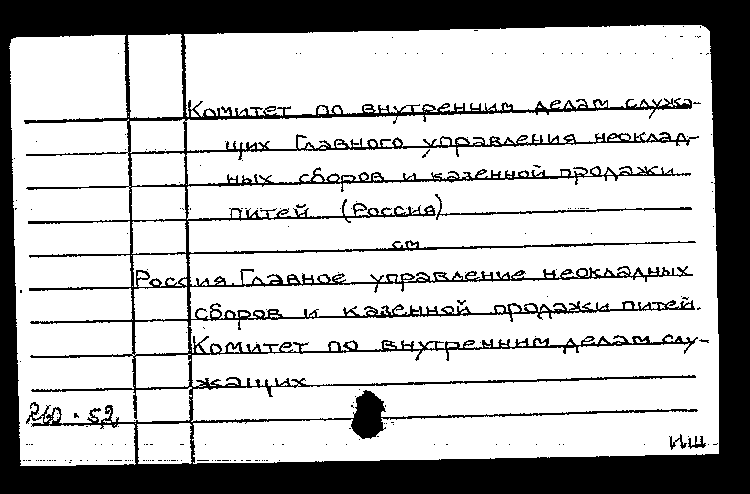 Комитет по внутренним делам служа-
щих Главного управления неоклад-
ных сборов и казенной продажи
питей (Россия)
см
Россия. Главное управление неокладных
сборов и казенной продажи питей.
Комитет по внутренним делам слу-
жащих
260 · 52
ИШ